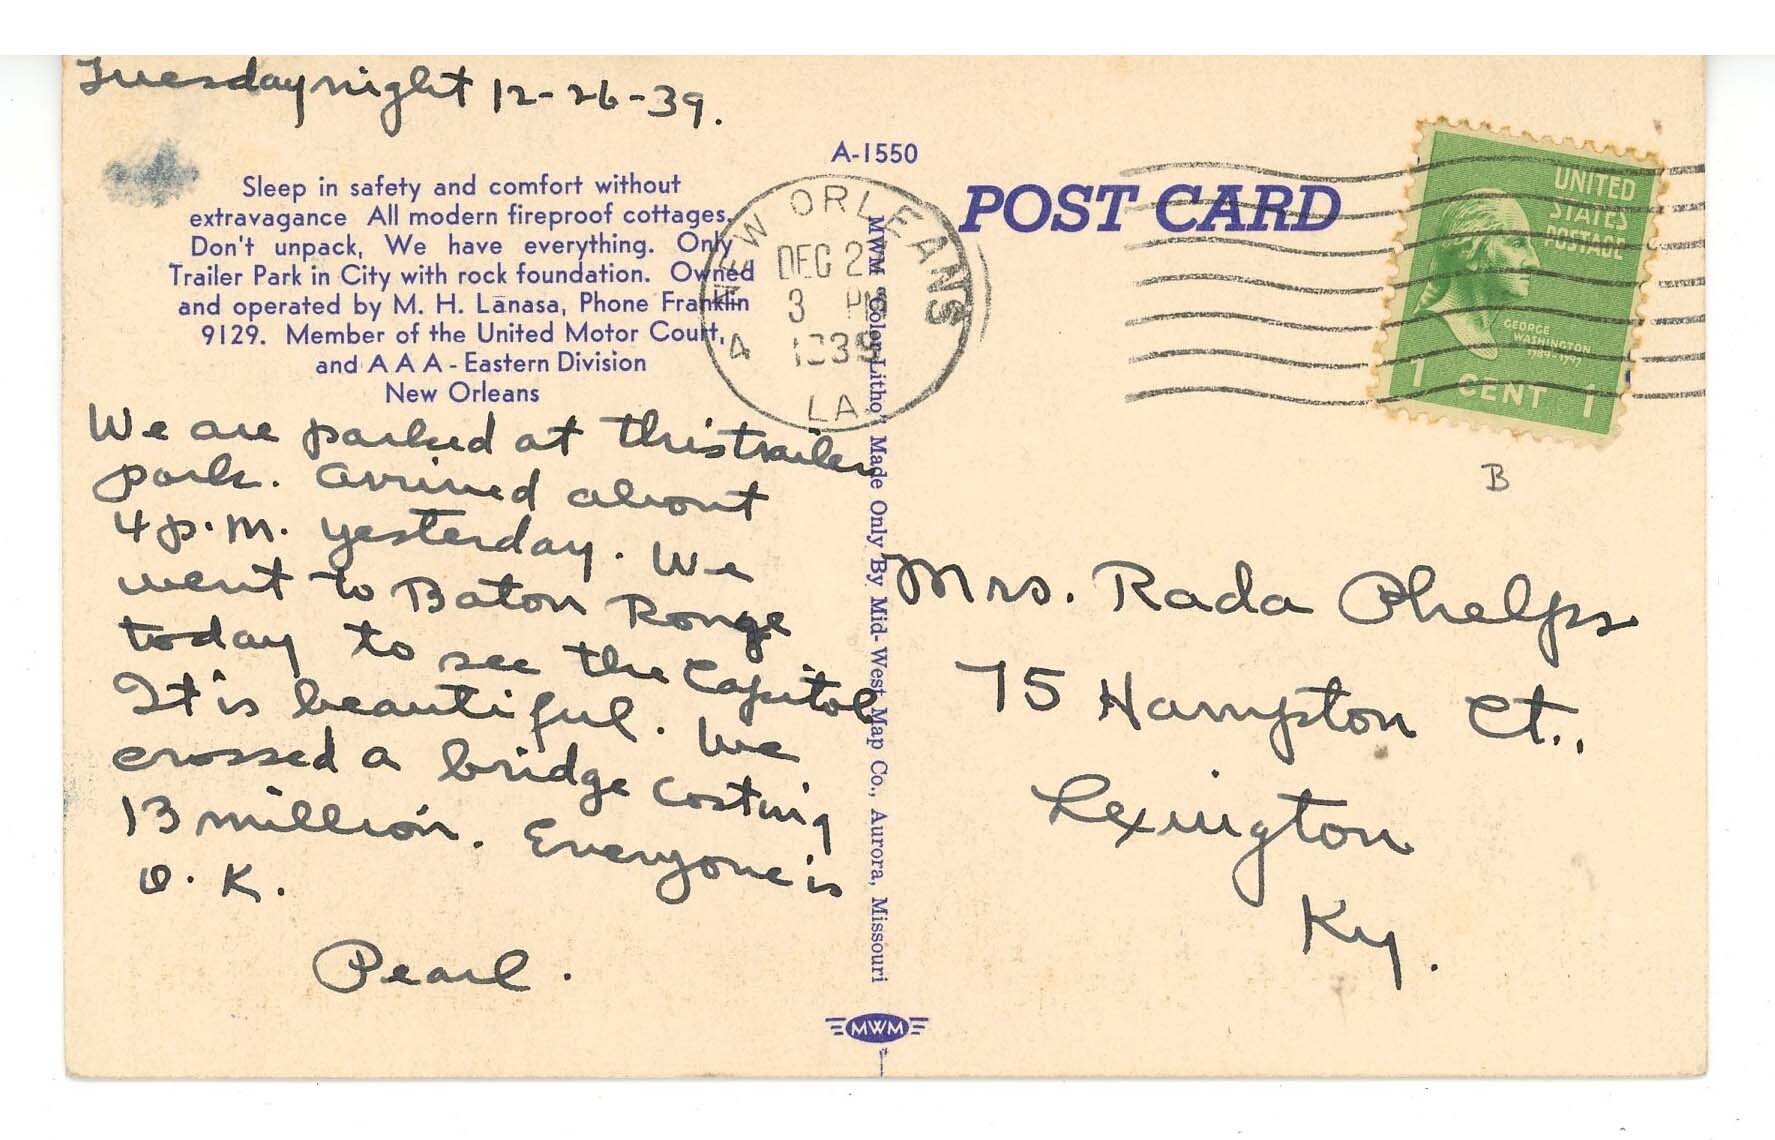 Tuesday night 12-26-39.
A-1550
Sleep in safety and comfort without
extravagance All modern fireproof cottages.
Don't unpack, We have everything. Only
Trailer Park in City with rock foundation. Owned
and operated by M. H. Lanasa, Phone Franklin
9129. Member of the United Motor Court,
and A A A - Eastern Division
New Orleans
We are parked at this trailer
park. Arrived about
4 p.m. yesterday. We
went to Baton Rouge
today to see the Capitol
It is beautiful. We
crossed a bridge costing
13 million. Everyone is
O.K.
Pearl.
NEW ORLEANS
DEC 2
3 PM
4 1939
LA.
MWM "Color-Litho" Made Only By Mid-West Map Co., Aurora, Missouri
MWM
POST CARD
UNITED
STATES
POSTAGE
GEORGE
WASHINGTON
1789-1797
1 CENT 1
B
Mrs. Rada Phelps
75 Hampton Ct.,
Lexington
Ky.